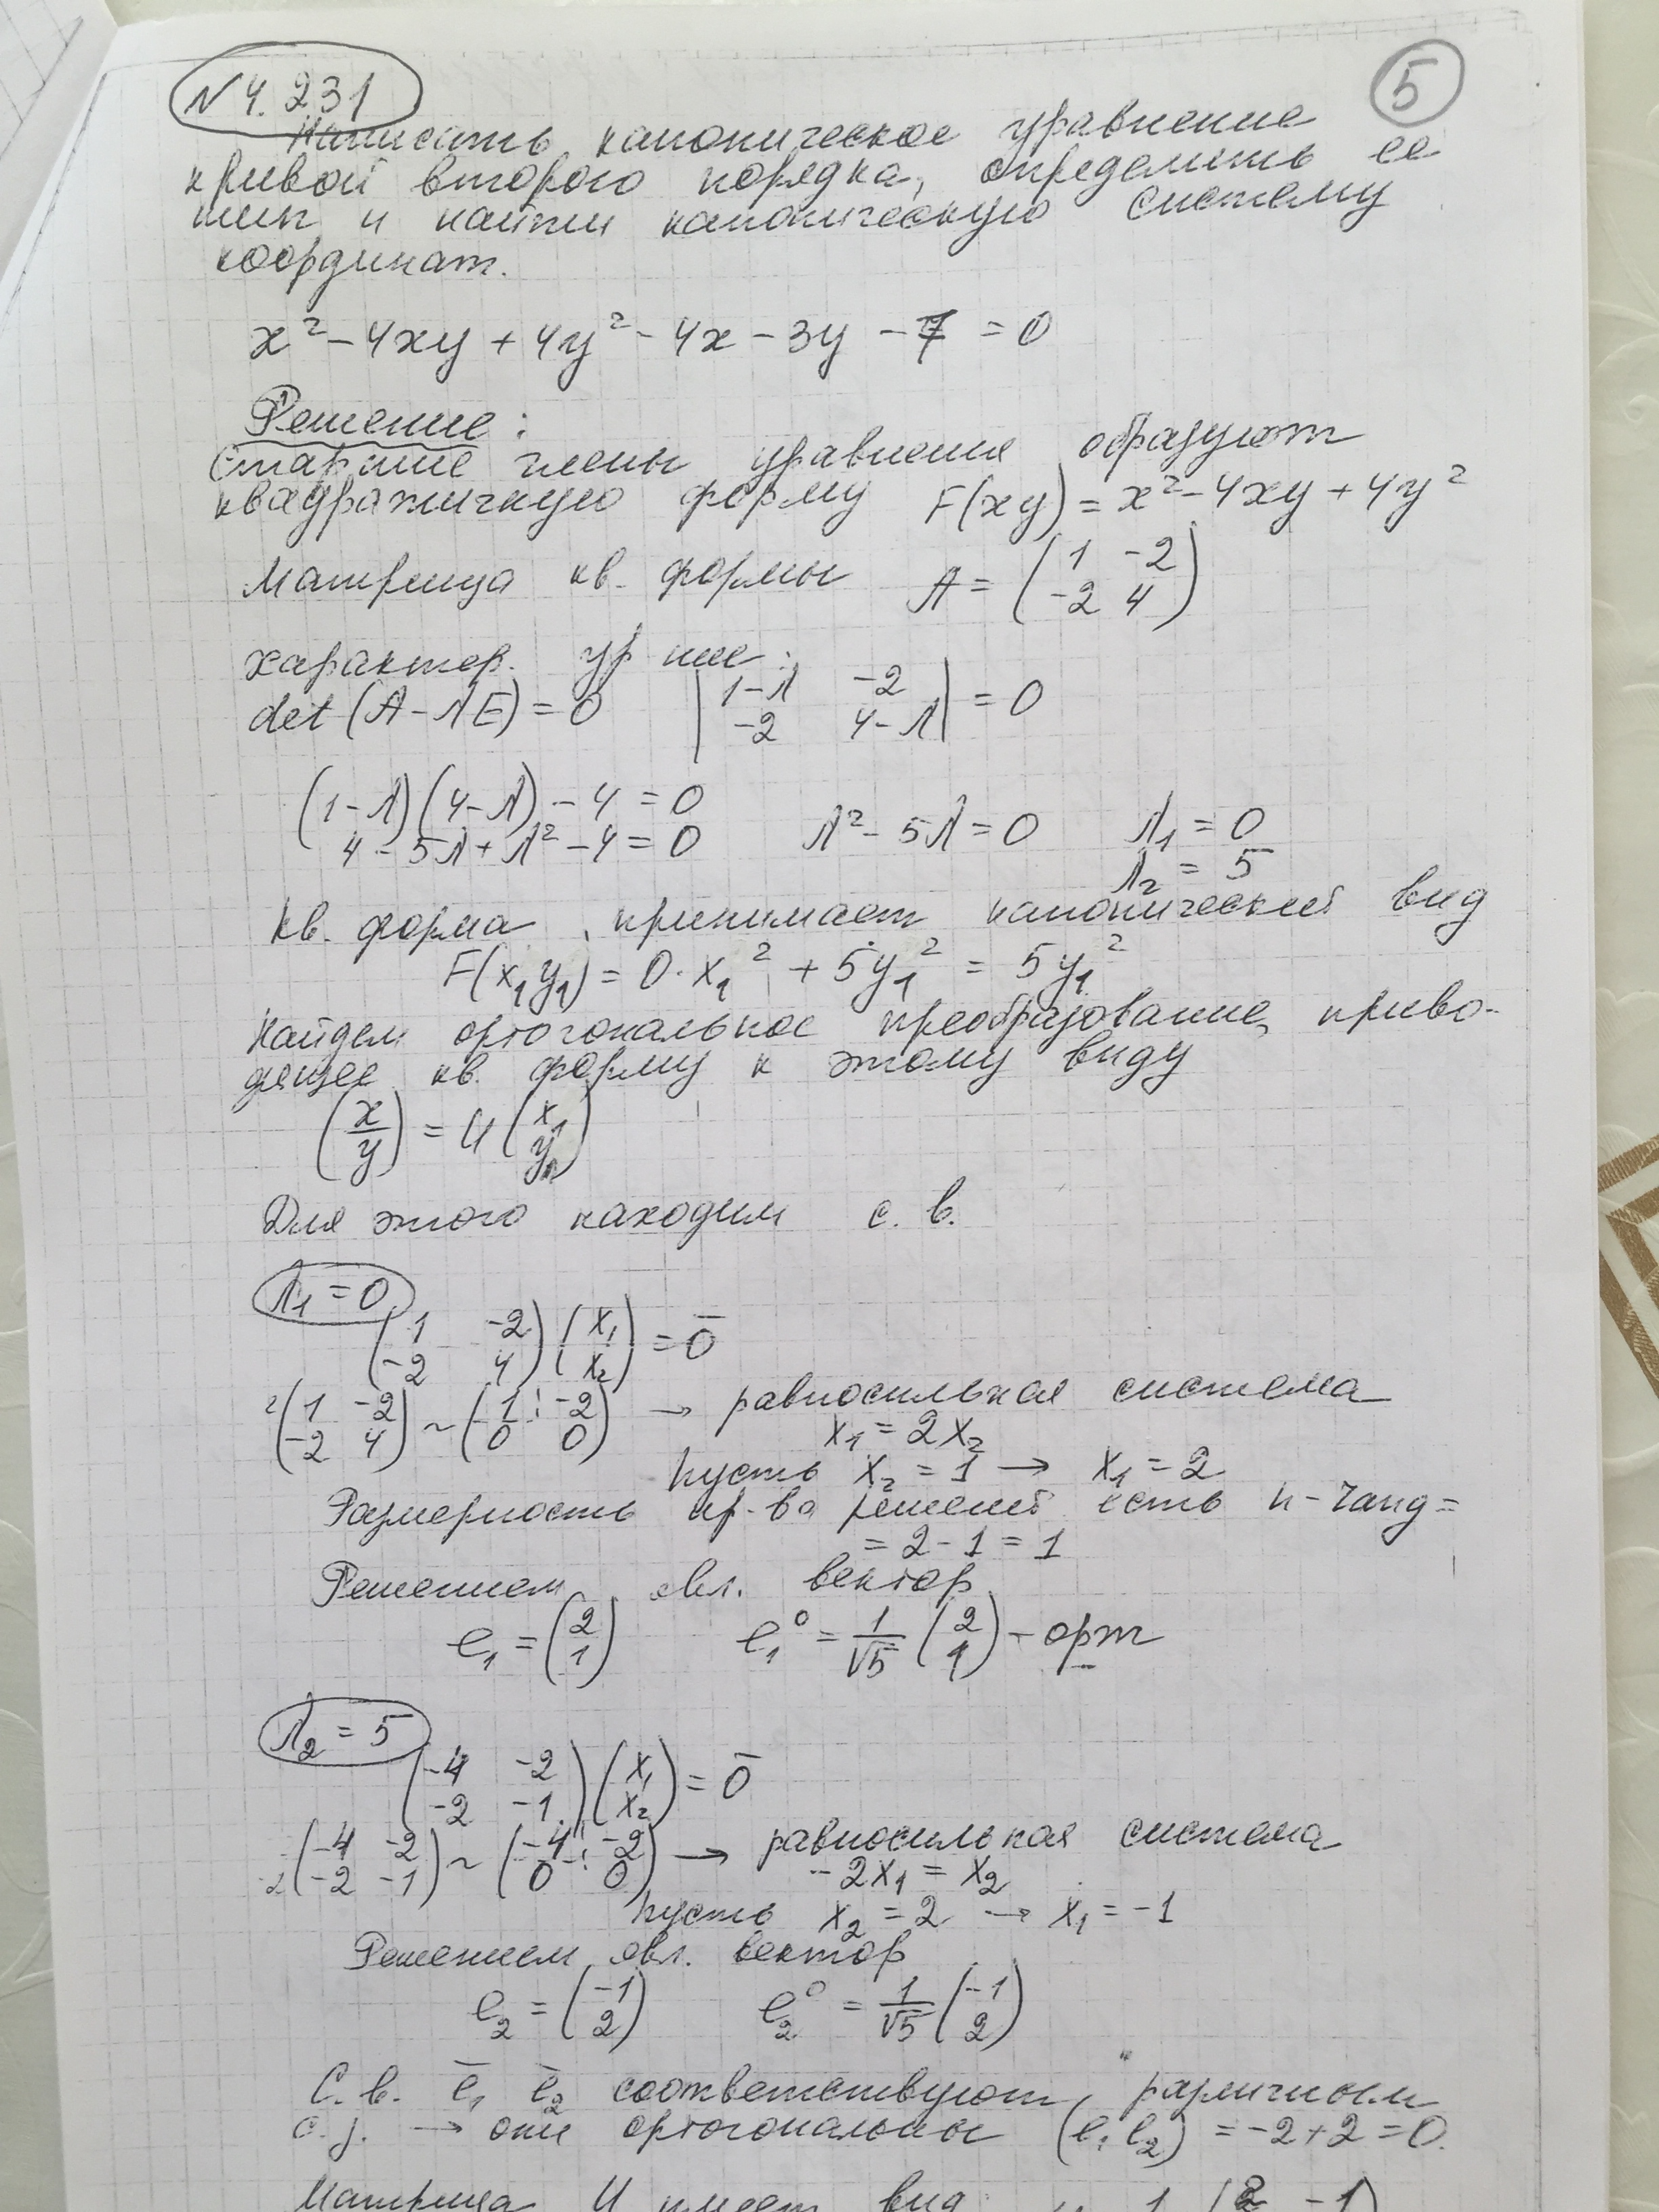 N 4.231
5
Написать каноническое уравнение
кривой второго порядка, определить ее
тип и найти каноническую систему
координат.
x² - 4xy + 4y² - 4x - 3y - 7 = 0
Решение:
Старшие члены уравнения образуют
квадратичную форму F(xy) = x² - 4xy + 4y²
Матрица кв. формы A = (1 -2
-2 4)
Характер. ур ние:
det(A - λE) = 0 |1-λ -2
-2 4-λ| = 0
(1-λ)(4-λ) - 4 = 0
4 - 5λ + λ² - 4 = 0 λ² - 5λ = 0 λ₁ = 0
λ₂ = 5
Кв. форма принимает канонический вид
F(x₁y₁) = 0·x₁² + 5y₁² = 5y₁²
Найдем ортогональное преобразование, приво-
дящее кв. форму к этому виду
(x
y) = U (x₁
y₁)
Для этого находим с. в.
λ₁ = 0
(1 -2
-2 4) (x₁
x₂) = 0̄
2 (1 -2
-2 4) ~ (1 ¦ -2
0 0) → равносильная система
x₁ = 2x₂
Пусть x₂ = 1 → x₁ = 2
Размерность пр-ва решений есть n - rang =
= 2 - 1 = 1
Решением явл. вектор
e₁ = (2
1) e₁⁰ = 1/√5 (2
1) - орт
λ₂ = 5
(-4 -2
-2 -1) (x₁
x₂) = 0̄
-2 (-4 -2
-2 -1) ~ (-4 ¦ -2
0 0) → равносильная система
-2x₁ = x₂
Пусть x₂ = 2 → x₁ = -1
Решением явл. вектор
e₂ = (-1
2) e₂⁰ = 1/√5 (-1
2)
С. в. ē₁ ē₂ соответствуют различным
с. з. → они ортогональны (e₁ e₂) = -2 + 2 = 0.
Матрица U имеет вид 1 (2 -1)